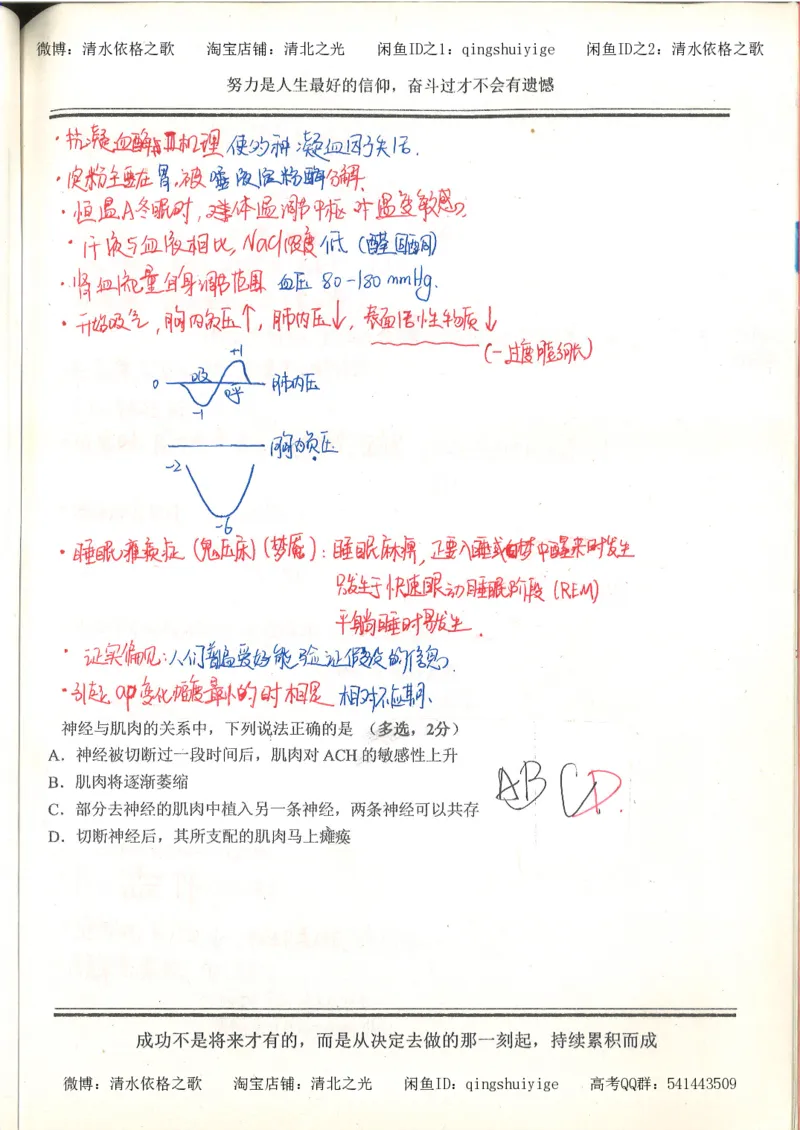 微博：清水依格之歌 淘宝店铺：清北之光 闲鱼ID之1：qingshuiyige 闲鱼ID之2：清水依格之歌
努力是人生最好的信仰，奋斗过才不会有遗憾
·抗凝血酶Ⅲ机理 使多种凝血因子失活.
·淀粉主要在胃,被唾液淀粉酶分解.
·恒温A冬眠时,其体温调节中枢对温变敏感
·汗液与血液相比,NaCl浓度低(醛固酮)
·肾血流量自身调节范围 血压 80-180 mmHg.
·开始吸气,胸内负压↑,肺内压↓,表面活性物质↓
(-过度膨胀)
+1
0 吸 呼 肺内压
-1
胸内负压
-2
-6
·睡眠瘫痪症(鬼压床)(梦魇):睡眠麻痹,正要入睡或由梦中醒来时发生
只发生于快速眼动睡眠阶段(REM)
平躺睡时易发生.
·证实偏见:人们普遍爱好能验证假设的信息.
·引起ap变化幅度最小的时相是 相对不应期.
神经与肌肉的关系中，下列说法正确的是 （多选，2分）
A．神经被切断过一段时间后，肌肉对 ACH 的敏感性上升
B．肌肉将逐渐萎缩
C．部分去神经的肌肉中植入另一条神经，两条神经可以共存
D．切断神经后，其所支配的肌肉马上瘫痪
ABCD.
成功不是将来才有的，而是从决定去做的那一刻起，持续累积而成
微博：清水依格之歌 淘宝店铺：清北之光 闲鱼ID：qingshuiyige 高考QQ群：541443509